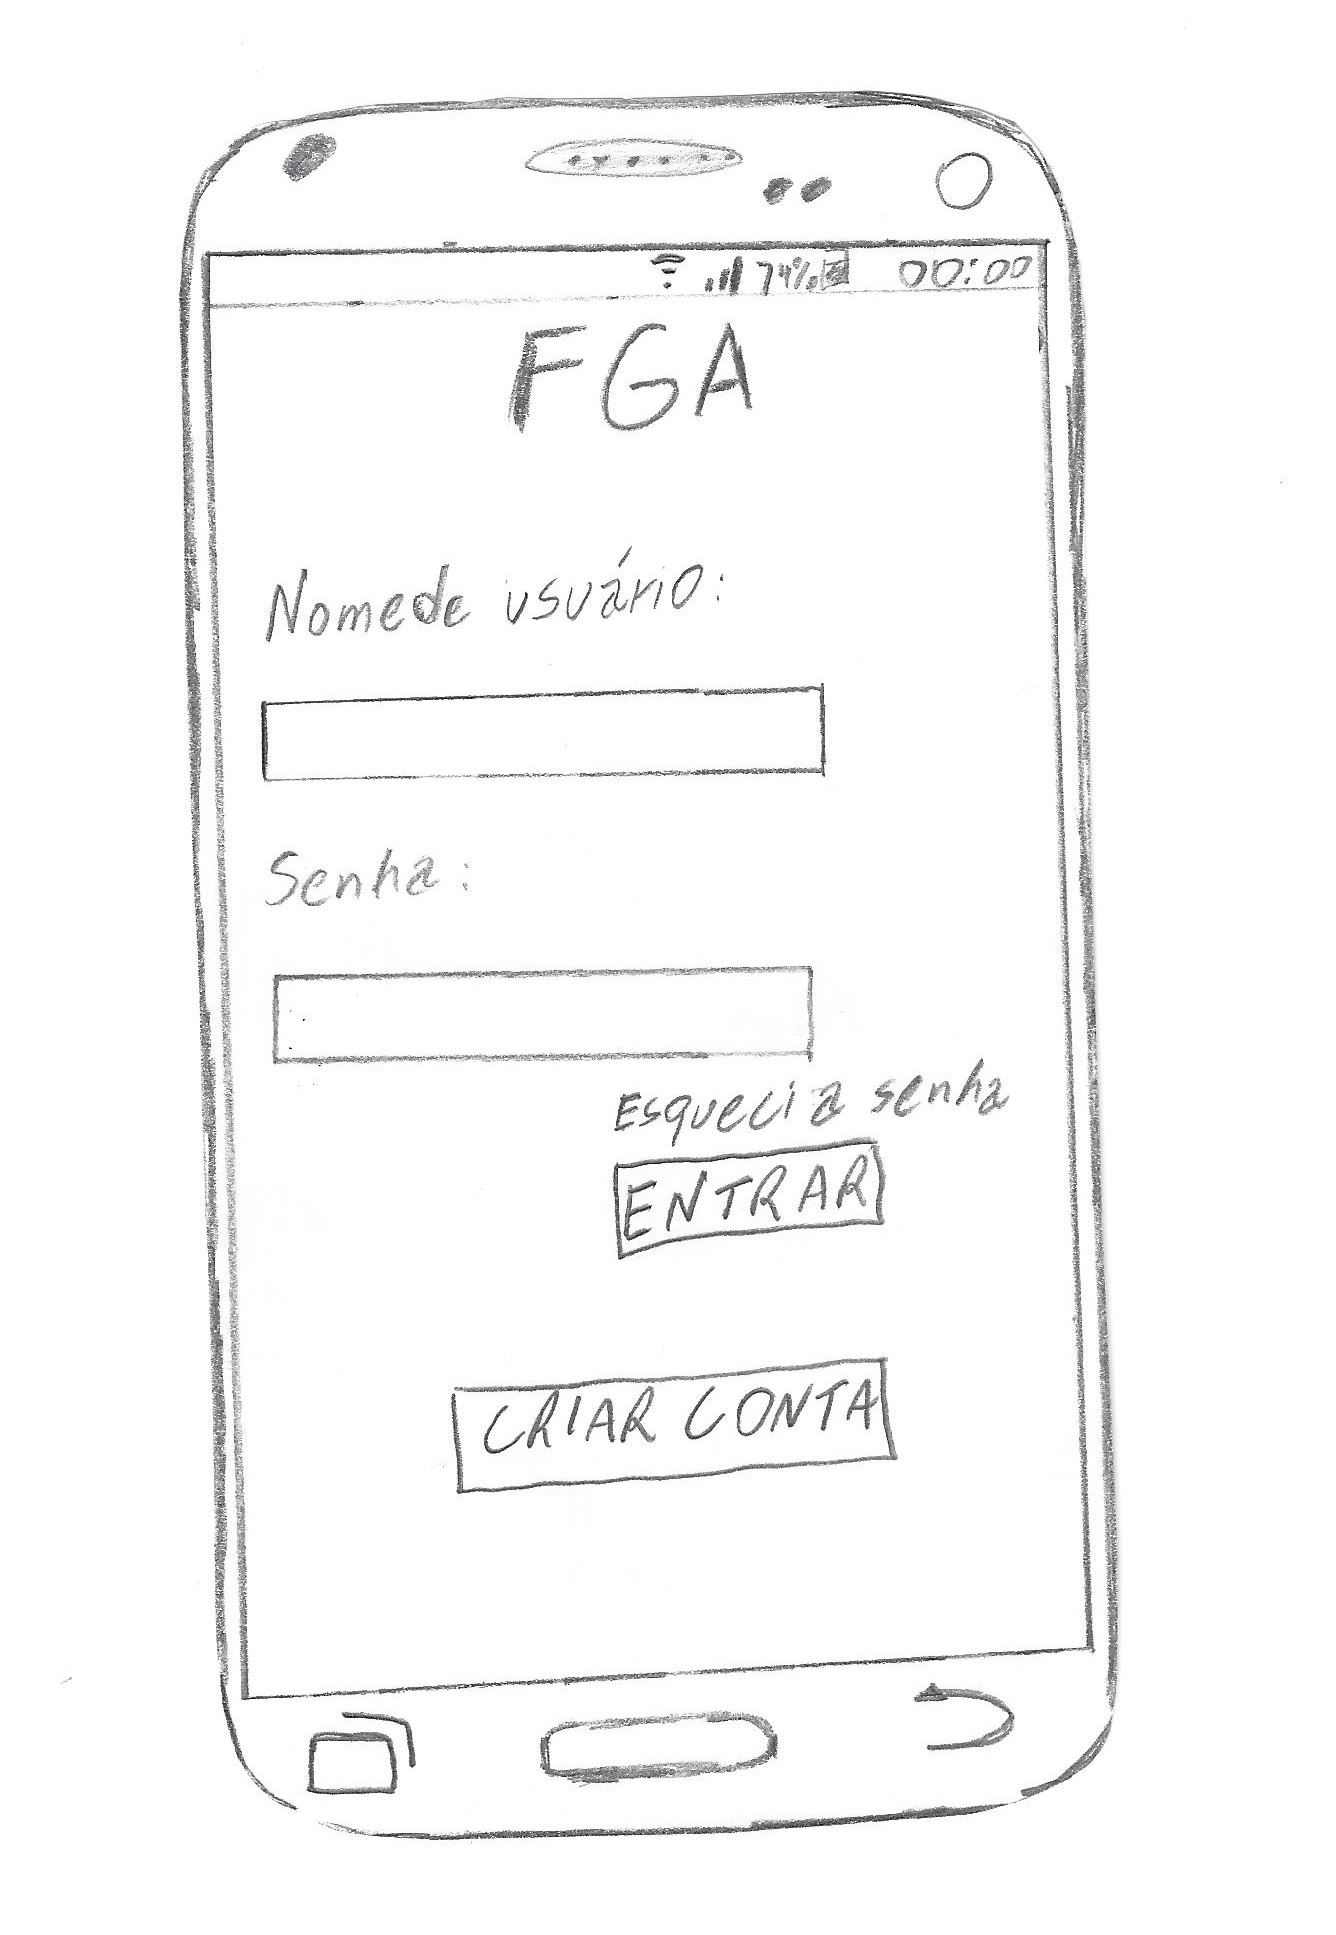 74% 00:00
FGA
Nome de usuário:
Senha:
Esqueci a senha
ENTRAR
CRIAR CONTA